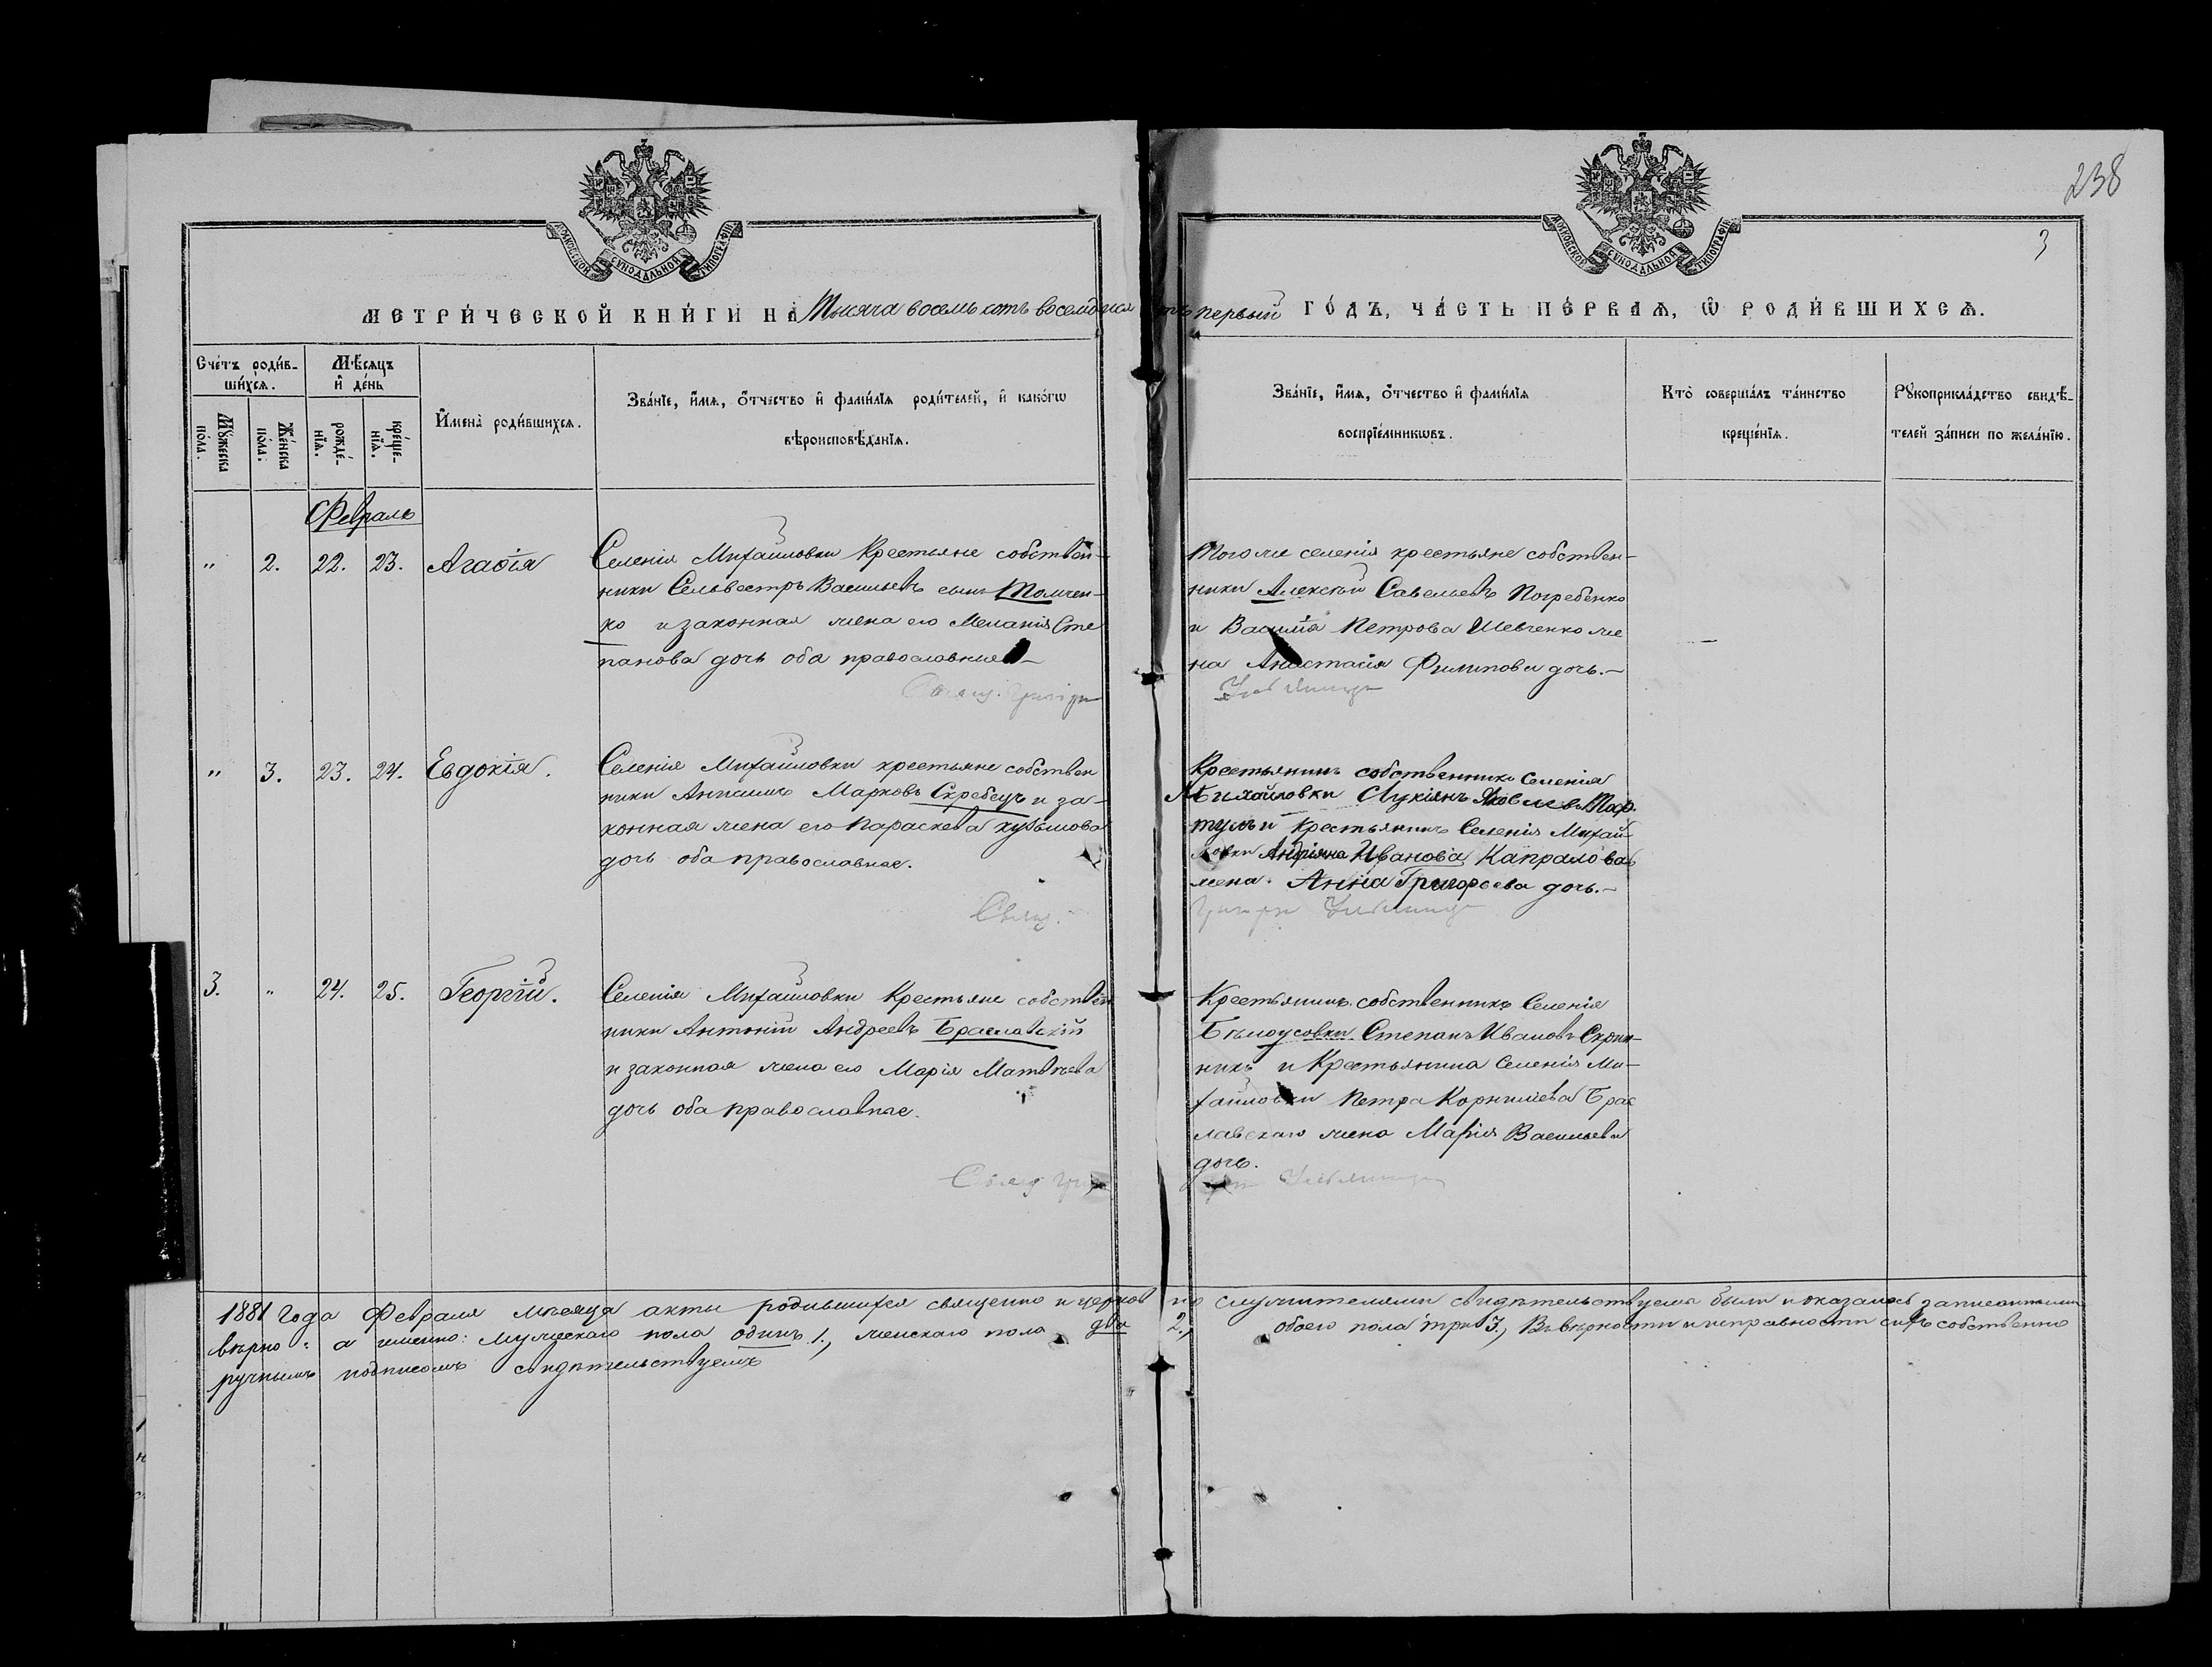 238
3
МОСКОВСКОЙ СѴНОДАЛЬНОЙ ТИПОГРАФІИ
МОСКОВСКОЙ СѴНОДАЛЬНОЙ ТИПОГРАФІИ
МЕТРИ́ЧЕСКОЙ КНИ́ГИ НА Тысяча восемьсотъ восемьдеся тъ первый ГО́ДЪ, ЧА́СТЬ ПЕ́РВАѦ, Ѿ РОДИ́ВШИХСѦ.
Сче́тъ роди́в-
ши́хсѧ.
Му́жеска по́ла.
Же́нска по́ла.
Мѣ́сѧцъ
и҆ де́нь
рожде́-нїѧ.
креще́-нїѧ.
И҆мена̀ роди́вшихсѧ.
Зва́нїе, и҆́мѧ, ѻ҆́тчество и҆ фами́лїѧ роди́телей, и҆ како́гѡ
вѣроисповѣ́данїѧ.
Зва́нїе, и҆́мѧ, ѻ҆́тчество и҆ фами́лїѧ
воспрїе́мникѡвъ.
Кто̀ соверша́лъ та́инство
креще́нїѧ.
Рꙋкоприкла́дство свидѣ́-
телей за́писи по жела́нїю.
Февраль
" 2. 22. 23. Агафія
Селенія Михайловки Крестьяне собствен-
ники Сельвестръ Васильевъ сынъ Толчен-
ко и законная жена его Меланія Сте
панова дочь оба православные
Того же селенія крестьяне собствен-
ники Алексѣй Савельевъ Погребенко
и Василія Петрова Шевченко же
на Анастасія Филипова дочь.
Свящ. Григорій
" 3. 23. 24. Евдокія.
Селенія Михайловки крестьяне собствен
ники Анисимъ Марковъ Скребецъ и за-
конная жена его Параскева Кузьмова
дочь оба православные.
Крестьянинъ собственникъ Селенія
Михайловки Лукіянъ Яковлевъ
и крестьянина Селенія Михай
ловки Андріяна Иванова Капралова
жена Анна Григорьева дочь.
Свящ.
3. " 24. 25. Георгій.
Селенія Михайловки Крестьяне собствен
ники Антоній Андреевъ Браславскій
и законная жена его Марія Матвѣева
дочь оба православные.
Крестьянинъ собственникъ Селенія
Бѣлоусовки Степанъ Ивановъ Скрип-
никъ и Крестьянина Селенія Ми-
хайловки Петра Корнилiева Брас
лавскаго жена Марія Васильева
дочь.
Свящ
1881 года Февраля мѣсяца акты родившихся священно и церков но служителями свидѣтельствуемы были и оказались записанными
вѣрно: а именно: мужескаго пола одинъ 1., женскаго пола два 2., обоего пола три 3., Въ вѣрности и исправности сихъ собственно
ручнымъ подписомъ свидѣтельствуемъ